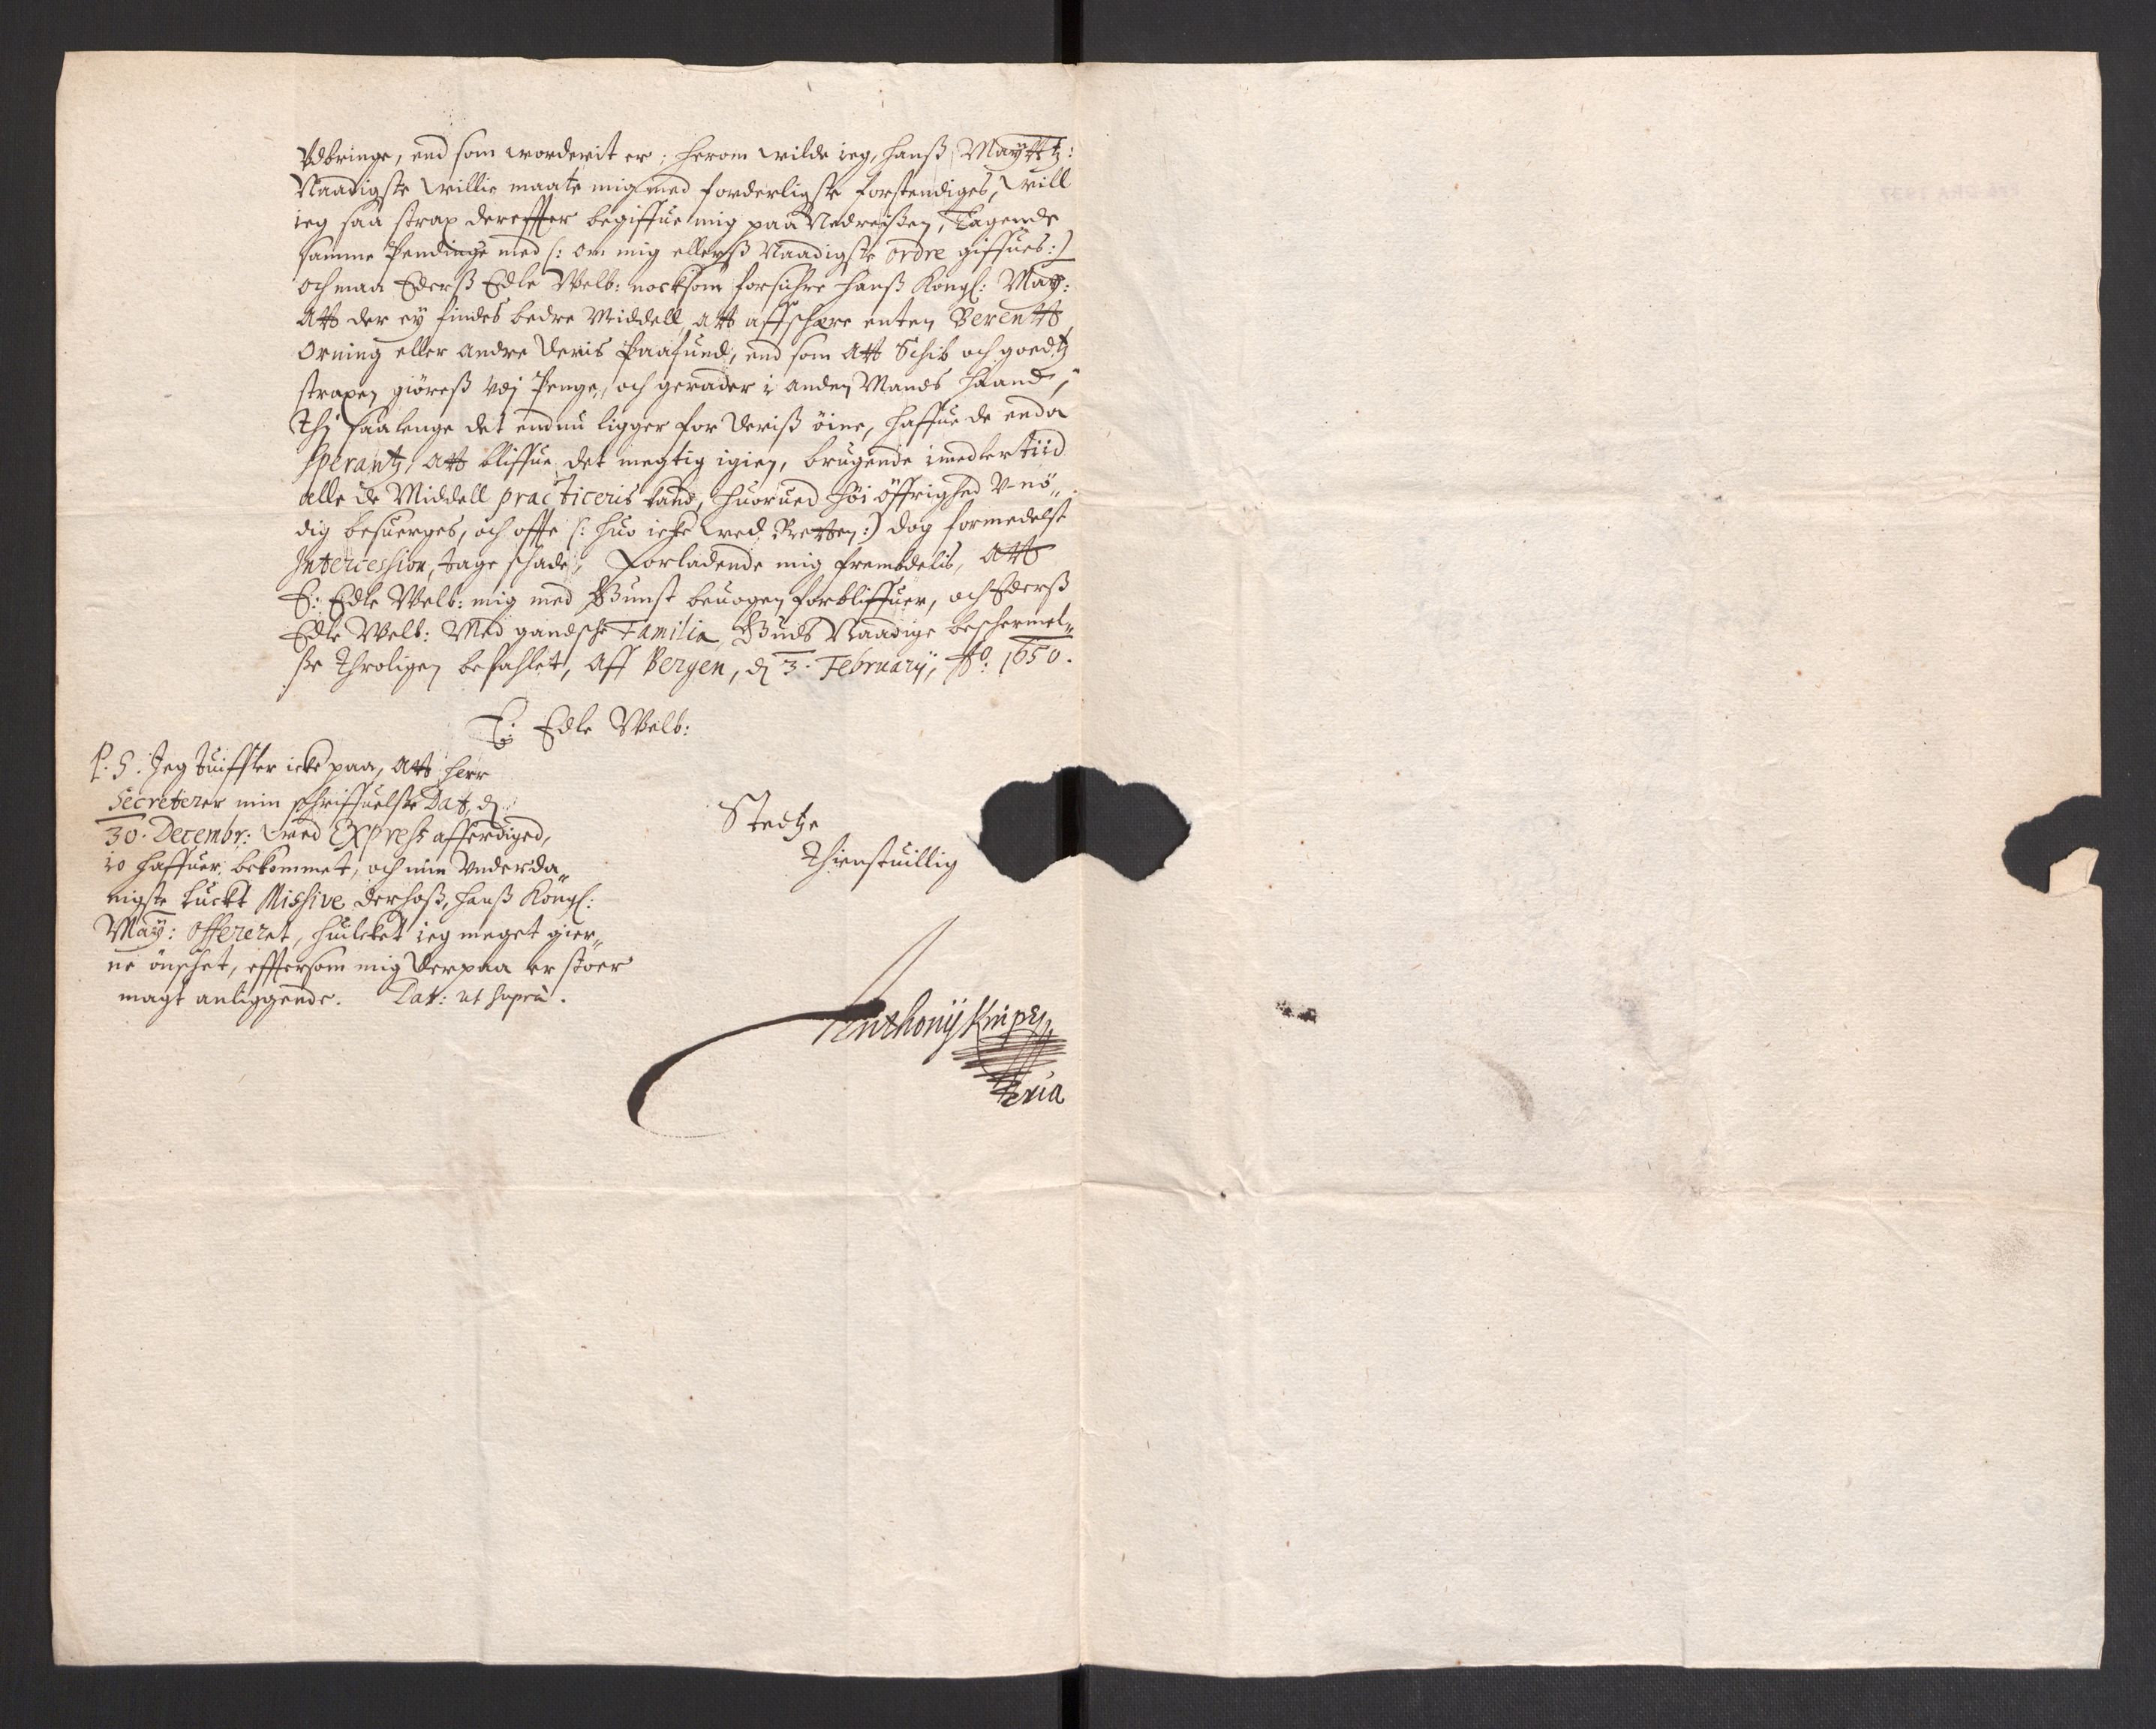 Vdbringe, end som worderit er; herom wilde ieg, hanß Maÿttz:
Naadigste willie maate mig med forderligste forstendiges, will
ieg saa strax derefftter begiffue mig paa Nedreißen, Tagende
samme Pendinge med (: om mig ellerß Naadigste ordre giffues:)
och maa Ederß Edle Welb: nocksom forsichre hanß Kongl: Maÿ:
Att der eÿ findes bedre Middell, att affschære enten Berentts
Orning eller andre deris Paafund, end som Att Schib och goedtz
straxen giøreß vdj Penge, och gerader i anden Mands haand;
Thj saalenge det endnu ligger for deriß öine, haffue de enda
Sperantz, Att bliffue det megtig igien, brugende imedlertiid
alle de Middell practiceris kand, huorued höi öffrighed V-nö„
dig besuerges, och offte (: huo icke wed Retten:) dog formedelst
Intercession, tage schade; Forladende mig frembdelis, Att
E: Edle Welb: mig med Gunst beuogen forbliffuer, och Ederß
Edle Welb: Med gandsche Familia, Guds Naadige beschermel„
ße Throligen befahlet, Aff Bergen, d 3. Februarÿ, Ao: 1650.
E: Edle Welb:
P. S. Jeg tuiffler icke paa, Att herr
Secreterer min schriffuelße Dat, d
30. Decembr: wed Express afferdiged,
io haffuer bekommet, och min vnderda„
nigste luckt Missive derhoß, hanß Kongl:
Maÿ: Offereret, huilcket ieg meget gier„
ne önschet, efftersom mig derpaa er stoer
magt anliggende. Dat: ut supra.
Stedtze
Thienstuillig
Anthonij Knipey